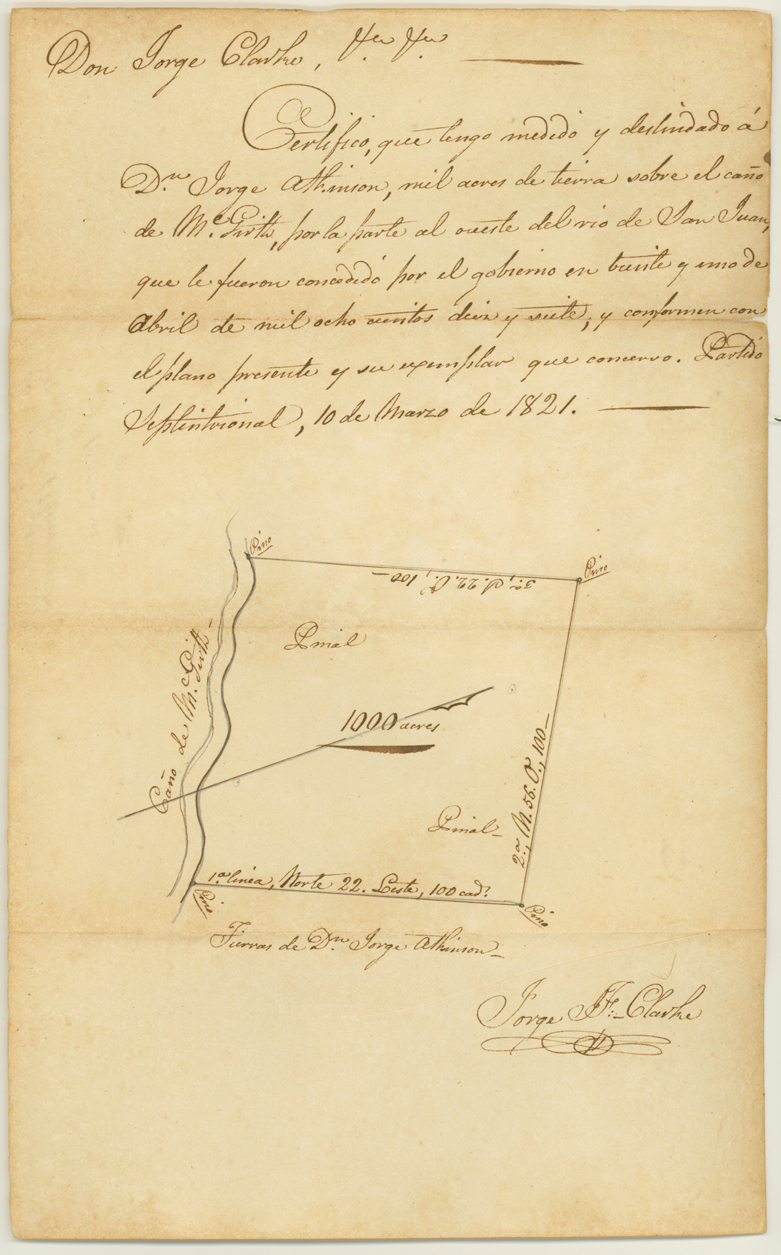 Don Jorge Clarke, &c. &c.
Certifico, que tengo medido y deslindado á
Dn. Jorge Atkinson, mil acres de tierra sobre el caño
de Mc.Girth, por la parte al oueste del rio de San Juan,
que le fueron concedidó por el gobierno en viente y uno de
Abril de mil ocho cientos diez y siete, y conformen con
el plano presente y su exemplar que concervo. Partido
Septintrional, 10 de Marzo de 1821.
Pino
Pino
3a., S. 22. O., 100
Pinal
Caño de Mc.Girth
1000 acres
2a., N. 56. O., 100
Pinal
1a. linea, Norte 22. Leste, 100 cads.
Pino
Pino
Tierras de Dn. Jorge Atkinson
Jorge J. F. Clarke